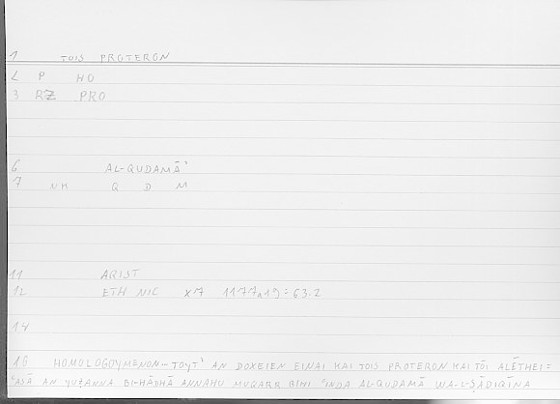 1 TOIS PROTERON
2 P HO
3 RZ PRO
6 AL-QUDAMĀʾ
7 NM Q D M
11 ARIST
12 ETH NIC X7 1177A19: 63.2
14
16 HOMOLOGOYMENON... TOYT' AN DOXEIEN EINAI KAI TOIS PROTERON KAI TŌI ALĒTHEI =
ʿASĀ AN YUẒANNA BI-HĀḎHĀ ANNAHU MUQARR BIHI ʿINDA AL-QUDAMĀ WA-L-ṢĀDIQĪNA